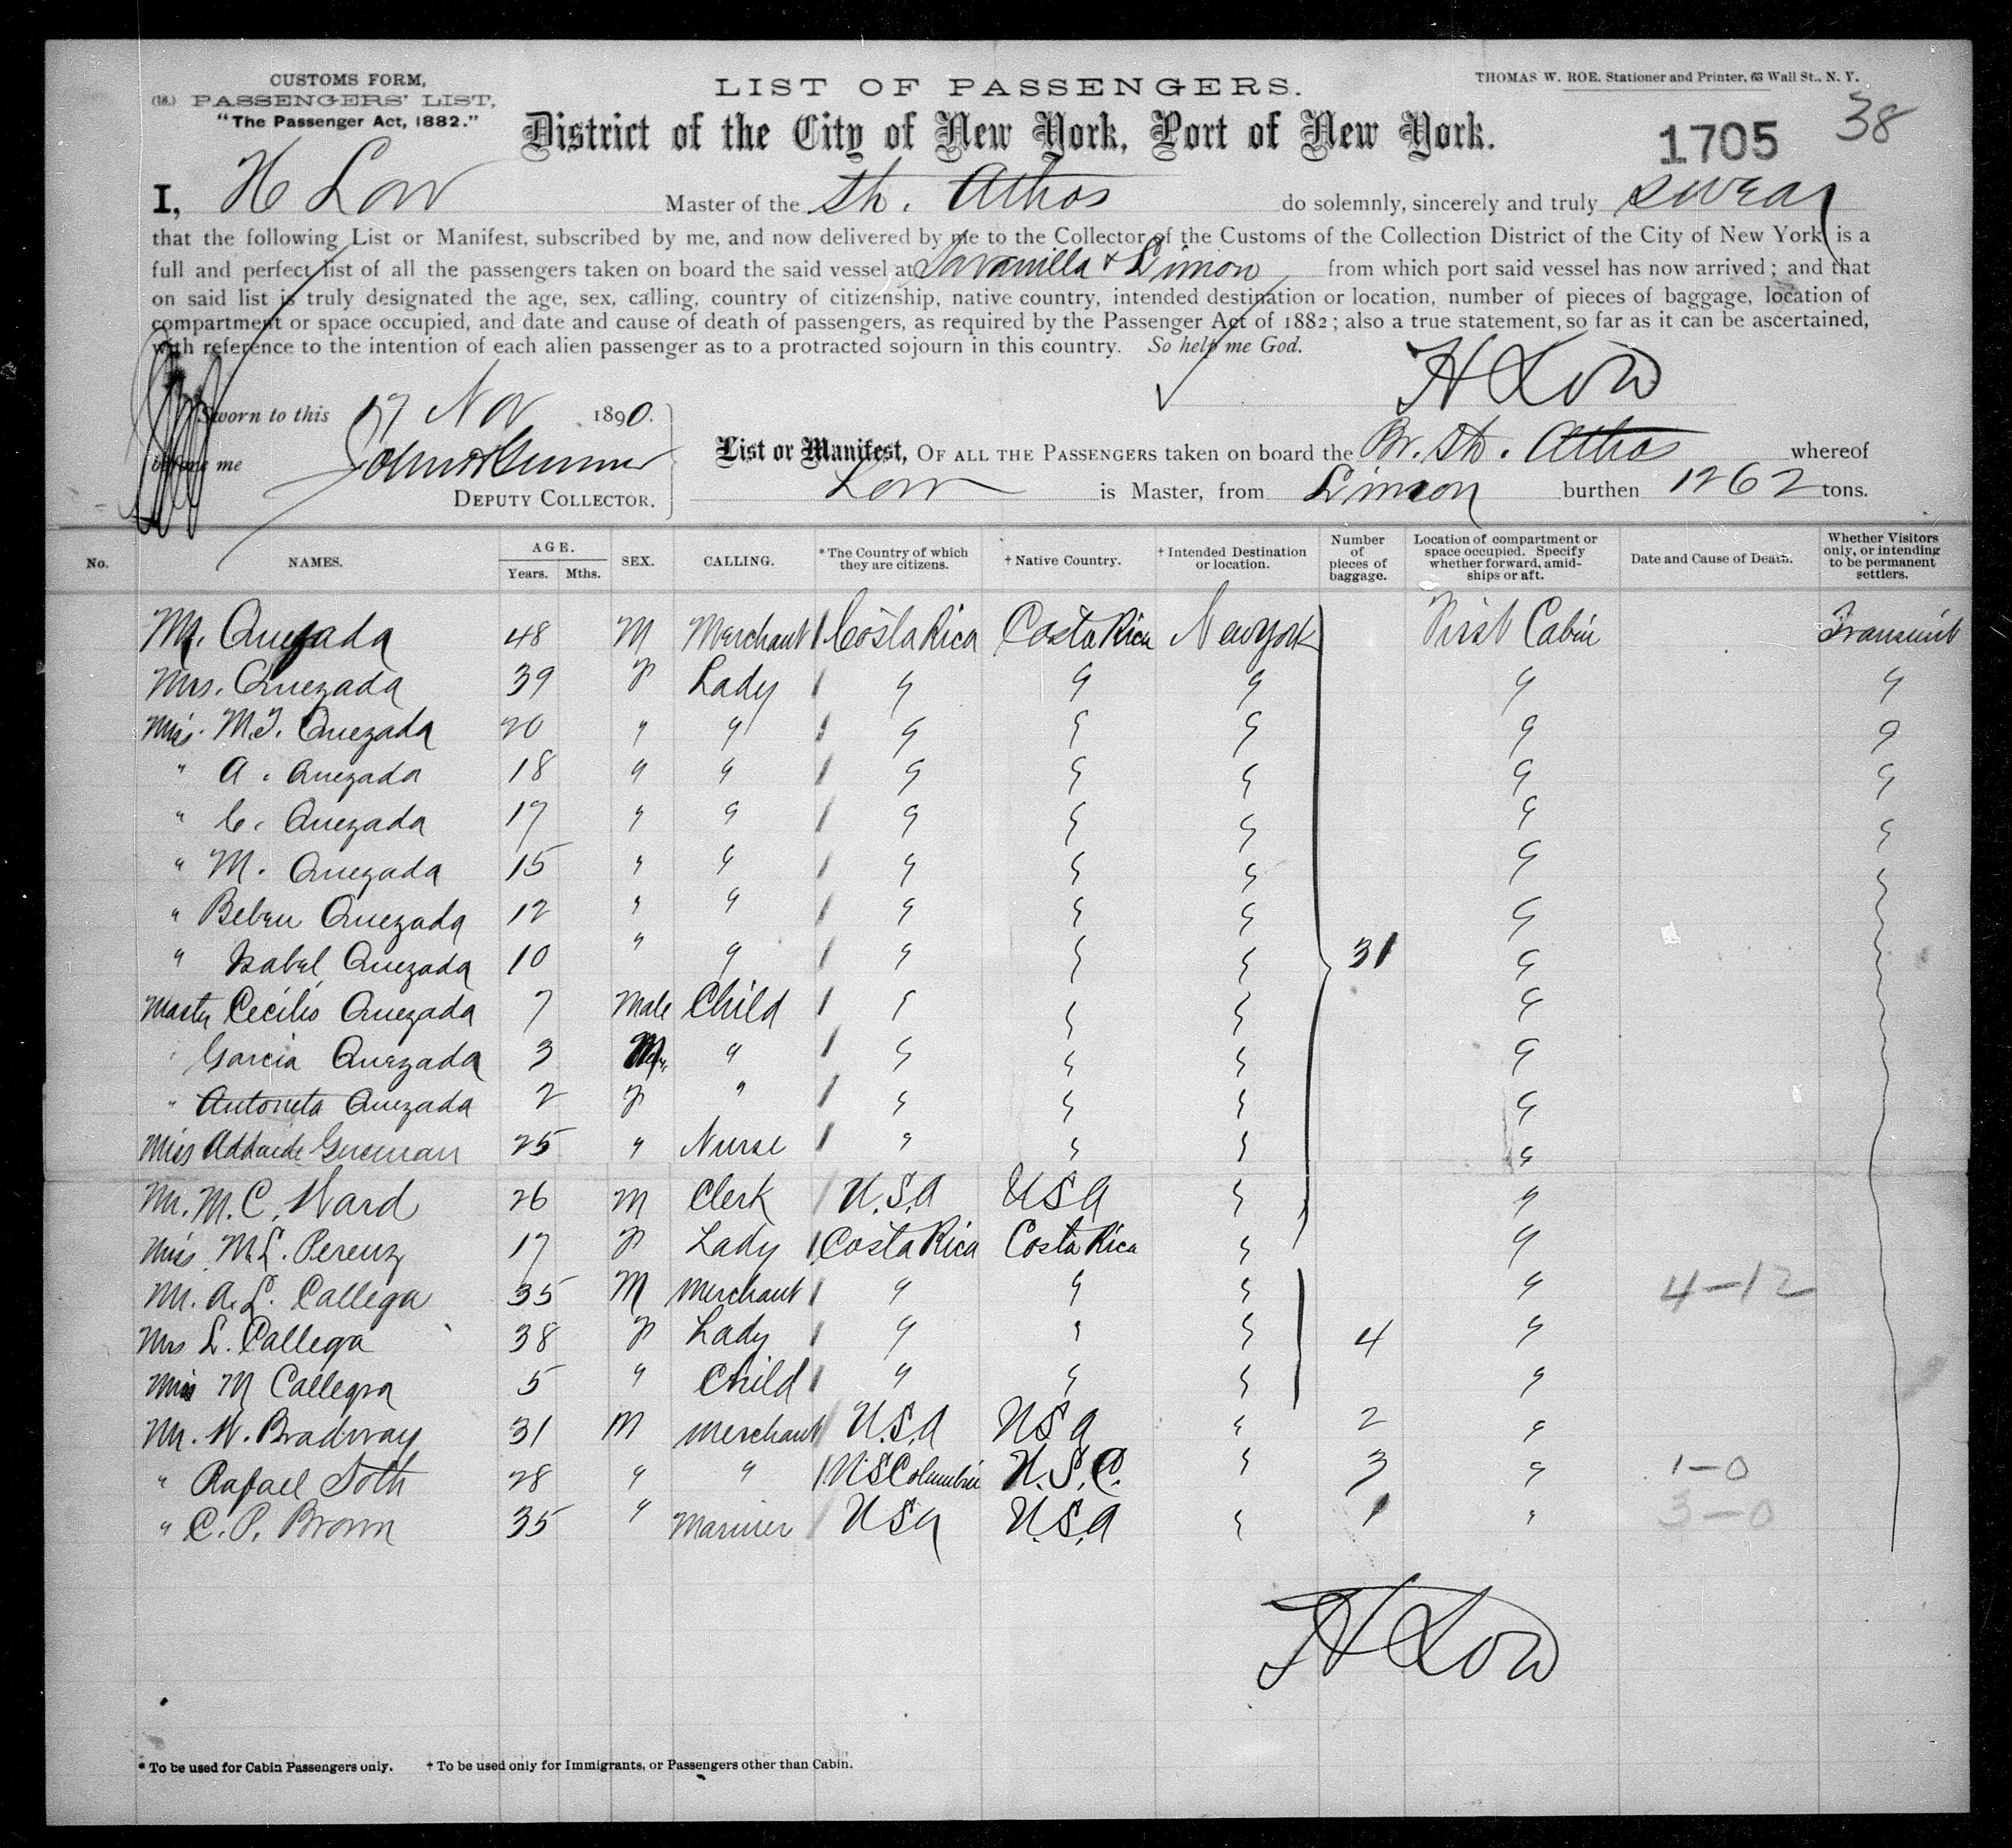 CUSTOMS FORM,
(18.) PASSENGERS' LIST,
"The Passenger Act, 1882."
LIST OF PASSENGERS.
THOMAS W. ROE, Stationer and Printer, 63 Wall St., N. Y.
District of the City of New York, Port of New York.
1705 38
I, H Low Master of the Sh. Athos do solemnly, sincerely and truly swear
that the following List or Manifest, subscribed by me, and now delivered by me to the Collector of the Customs of the Collection District of the City of New York is a
full and perfect list of all the passengers taken on board the said vessel at Savanilla & Limon from which port said vessel has now arrived; and that
on said list is truly designated the age, sex, calling, country of citizenship, native country, intended destination or location, number of pieces of baggage, location of
compartment or space occupied, and date and cause of death of passengers, as required by the Passenger Act of 1882; also a true statement, so far as it can be ascertained,
with reference to the intention of each alien passenger as to a protracted sojourn in this country. So help me God.
H Low
Sworn to this 17 Nov 1890.
before me
DEPUTY COLLECTOR.
List or Manifest, OF ALL THE PASSENGERS taken on board the Br. Sh. Athos whereof
Low is Master, from Limon burthen 1262 tons.
No. NAMES. AGE. Years. Mths. SEX. CALLING. *The Country of which they are citizens. †Native Country. †Intended Destination or location. Number of pieces of baggage. Location of compartment or space occupied. Specify whether forward, amidships or aft. Date and Cause of Death. Whether Visitors only, or intending to be permanent settlers.
Mr. Quezada 48 M Merchant Costa Rica Costa Rica New York First Cabin Transient
Mrs. Quezada 39 F Lady " " " " "
Miss. M.T. Quezada 20 " " " " " " "
" A. Quezada 18 " " " " " " "
" C. Quezada 17 " " " " " " "
" M. Quezada 15 " " " " " " "
" Belen Quezada 12 " " " " " " "
" Isabel Quezada 10 " " " " " 31 " "
Master Cecilio Quezada 7 Male Child " " " "
" Garcia Quezada 3 M " " " " "
" Antoneta Quezada 2 F " " " " "
Miss Addaide Guzman 25 " Nurse " " " "
Mr. M. C. Ward 26 M Clerk U.S.A USA " "
Miss. M.L. Perenz 17 F Lady Costa Rica Costa Rica " "
Mr. A. L. Callega 35 M Merchant " " " " 4-12
Mrs L. Callega 38 F Lady " " " 4 "
Miss M Callega 5 " Child " " " "
Mr. W. Bradway 31 M Merchant U.S.A USA " 2 "
" Rafael Soth 28 " " U S Columbia U.S.C. " 3 " 1-0
" C. P. Brown 35 " Mariner USA U.S.A " 1 " 3-0
H Low
* To be used for Cabin Passengers only. † To be used only for Immigrants, or Passengers other than Cabin.